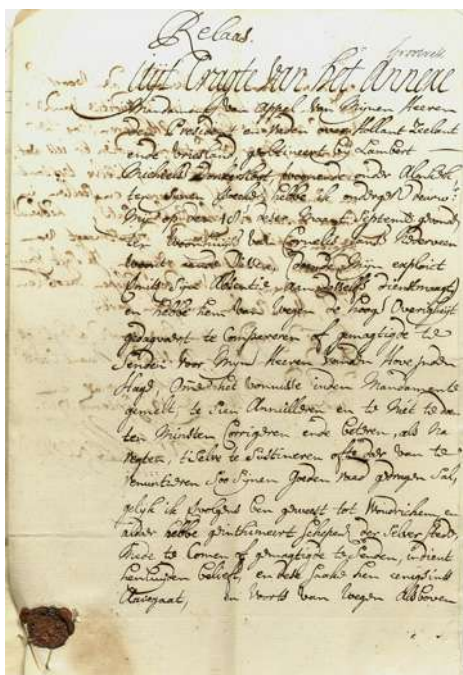 Relaas.
Uijt Cragte van het Annexe
Mandament van Appel van Mijnen Heeren
den President en Raden over Hollant Zeelant
ende Vriesland geobtineert bij Lambert
Michielsz wonende onder
ten Sijnen hebbe ik onderges deurw:
Mij op den 18 deser Maant Septemb
ter Woonhuijse van Cornelis Jansz
Mijn exploit
Sijne Absentie aan desselfs dienstmaagt
en hebbe hem van wegen de hooge Overigheijt
gedagvaert te Compareren of gemagtigde te
Senden voor Mijn Heeren vanden Hove inden
Hage, Omme het vonnisse inden Mandamente
gemelt, te Sien Annulleren en te Niet te doen
ten Minsten Corrigeren ende beteren, als Na
regten, 't Selve te Sustineren ofte daer van te
renuntieren Soo Sijnen Goeden Raad gedragen Sal,
gelijk ik vervolgens ben geweest tot Woudrichem en
aldaer hebbe geinthimeert Schepen der Selver Stede,
Mede te Comen of gemagtigde te Senden, indient
henluijden belieft, en dese Saake hen eenigsints
Aangaat, en voorts van wegen Als boven